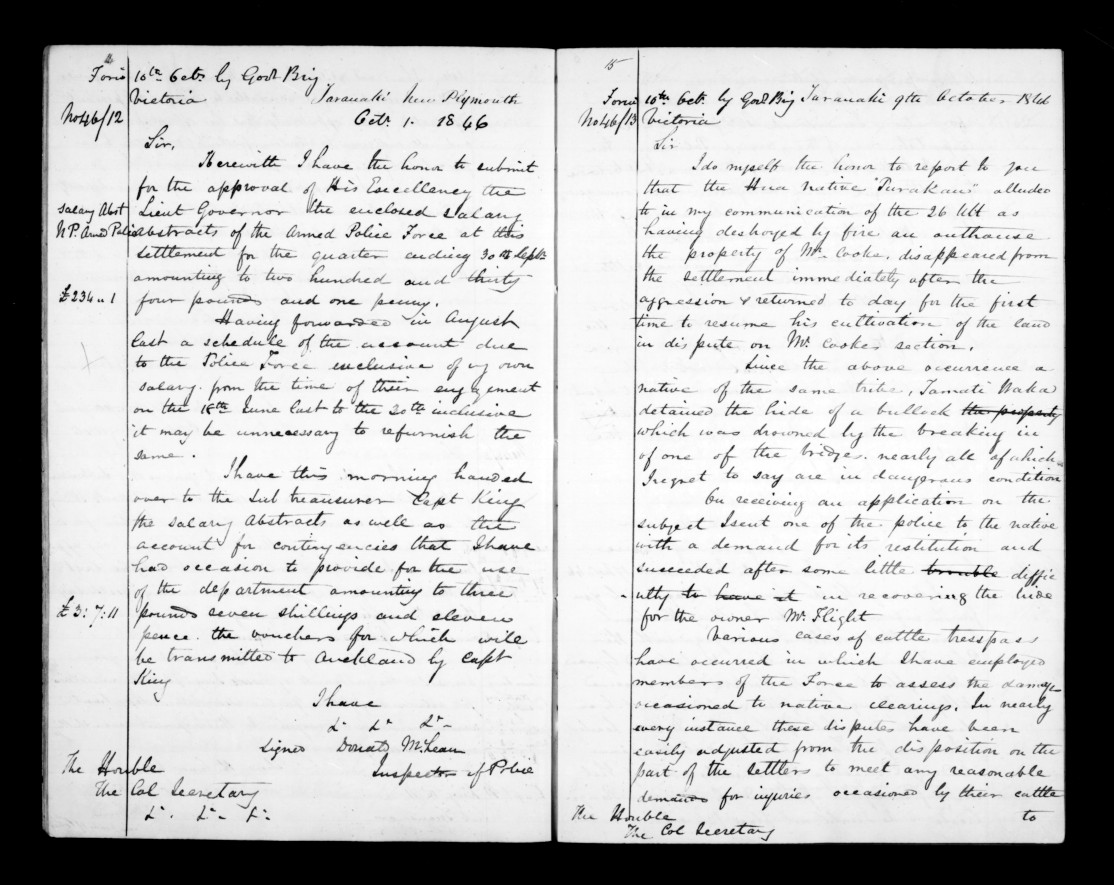 14
Forwd 10th Octr by Govt Brig
Victoria Taranaki New Plymouth
No 46/12 Octr 1. 1846
Sir,
Herewith I have the honor to submit
for the approval of His Excellency the
Salary Abst Lieut Governor the enclosed salary
N P. Armd Police abstracts of the Armed Police Force at this
settlement for the quarter ending 30th Septr
amounting to two hundred and thirty
£234 " 1 four pounds and one penny.
Having forwarded in August
last a schedule of the account due
to the Police Force exclusive of my own
salary from the time of their engagement
on the 18th June last to the 30th inclusive
it may be unnecessary to refurnish the
same.
I have this morning handed
over to the Sub treasurer Capt King
the salary Abstracts as well as the
account for contingencies that I have
had occasion to provide for the use
of the department amounting to three
£3: 7: 11 pounds seven shillings and eleven
pence. the vouchers for which will
be transmitted to Auckland by Capt
King
I have
Signed Donald McLean
The Honble Inspector of Police
The Col Secretary
15
Forwd 10th Octr by Govt Brig Taranaki 9th October 1846
No 46/13 Victoria
Sir
I do myself the honor to report to you
that the Hua native "Parakau" alluded
to in my communication of the 26 Ult as
having destroyed by fire an outhouse
the property of Mr Cooke. disappeared from
the settlement immediately after the
aggression & returned to day for the first
time to resume his cultivation of the land
in dispute on Mr. Cookes section.
Since the above occurrence a
native of the same tribe, Tamati Waka
detained the hide of a bullock the property
which was drowned by the breaking in
of one of the bridges. nearly all of which
I regret to say are in dangerous condition
On receiving an application on the
subject I sent one of the police to the native
with a demand for its restitution and
succeeded after some little trouble diffic
ulty to have it in recovering the hide
for the owner Mr. Flight
Various cases of cattle tresspass
have occurred in which I have employed
members of the Force to assess the damage
occasioned to native clearings. In nearly
every instance these disputes have been
easily adjusted from the disposition on the
part of the settlers to meet any reasonable
demands for injuries occasioned by their cattle
The Honble to
The Col Secretary